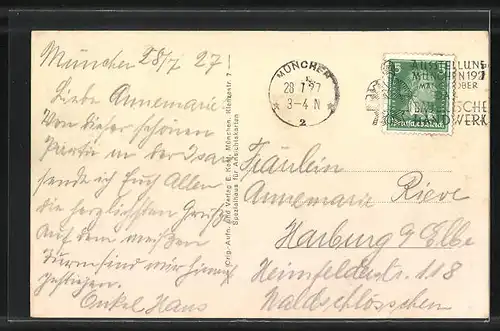 München 28/7 27
Liebe Annemarie
Von dieser schönen
Partie an der Isar
sende ich Euch Allen
die herzlichsten Grüße
Auf dem weißen
Turm sind wir hinauf
gestiegen.
Onkel Hans
Orig.-Aufn. und Verlag E. München, Klenzestr. 7
Spezialhaus für Ansichtskarten
MÜNCHEN
28 7 27
3-4 N
2
5
AUSSTELLUNG
MÜNCHEN 192
MAI OBER
BAYRISCHE
HANDWERK
Fräulein
Annemarie Rieve
Harburg a/ Elbe
Heimfelderstr. 118
Waldschlösschen